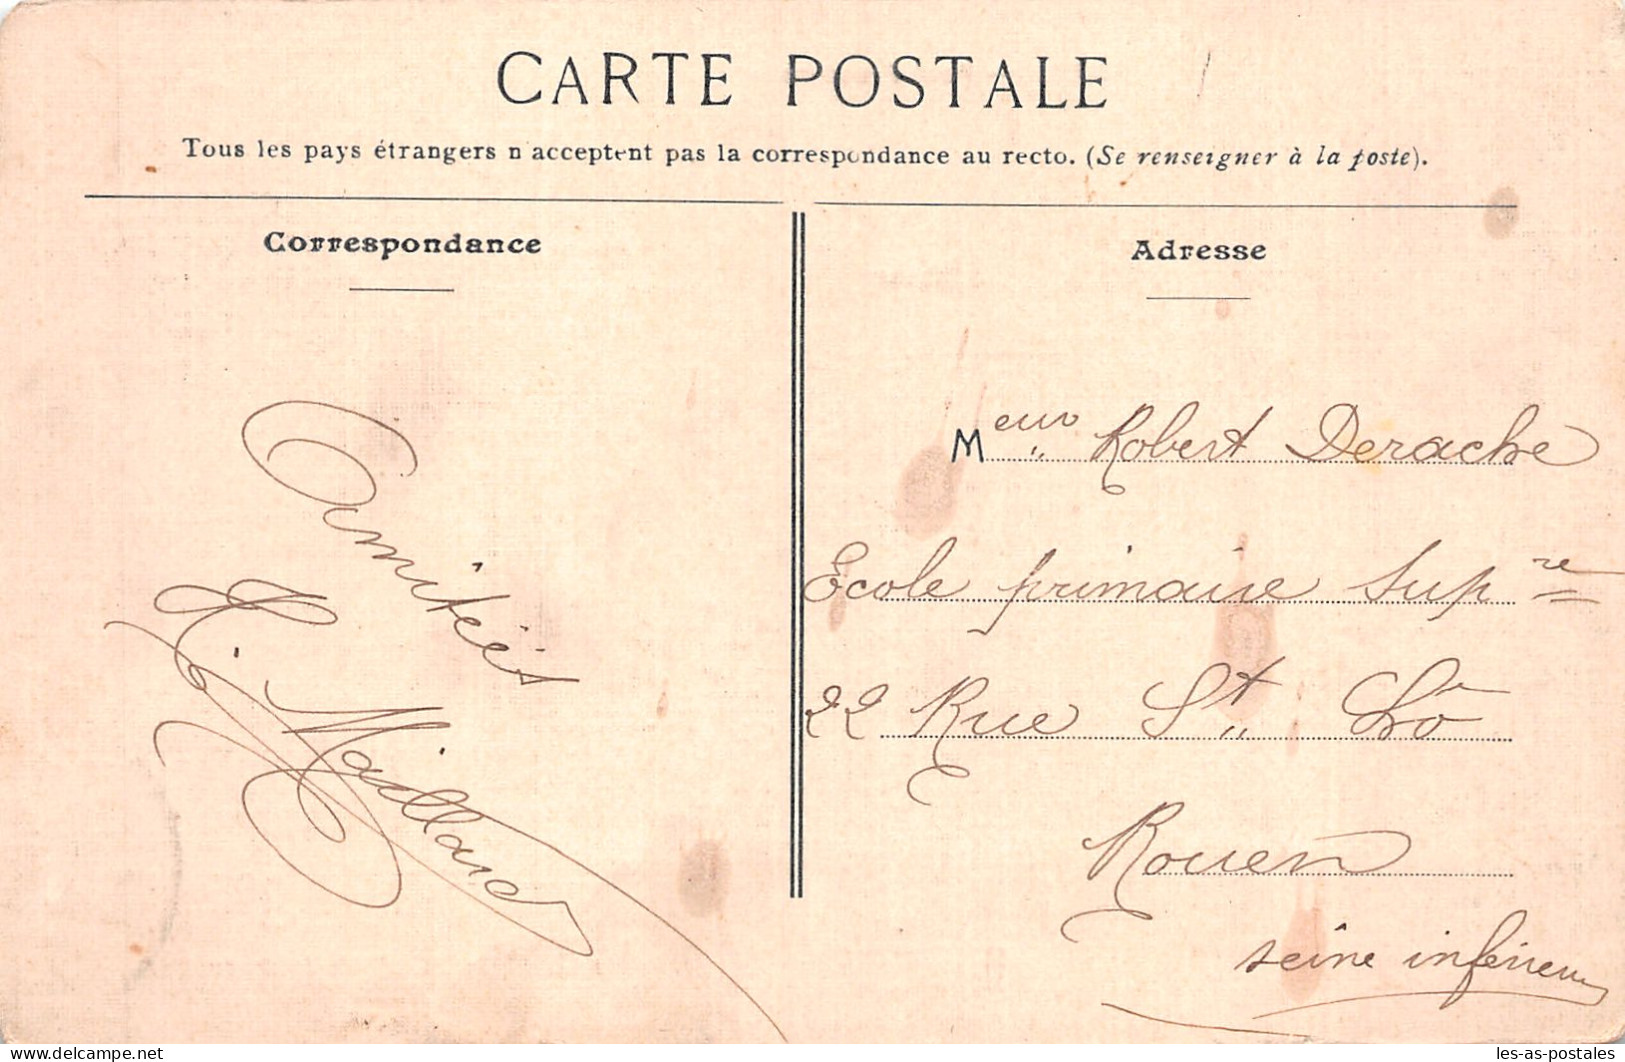 CARTE POSTALE
Tous les pays étrangers n'acceptent pas la correspondance au recto. (Se renseigner à la poste).
Correspondance
Amitiés
H. Maillard
Adresse
Meur Robert Derache
Ecole primaire Supre
22 Rue St Lô
Rouen
Seine inférieure
delcampe.net
les-as-postales